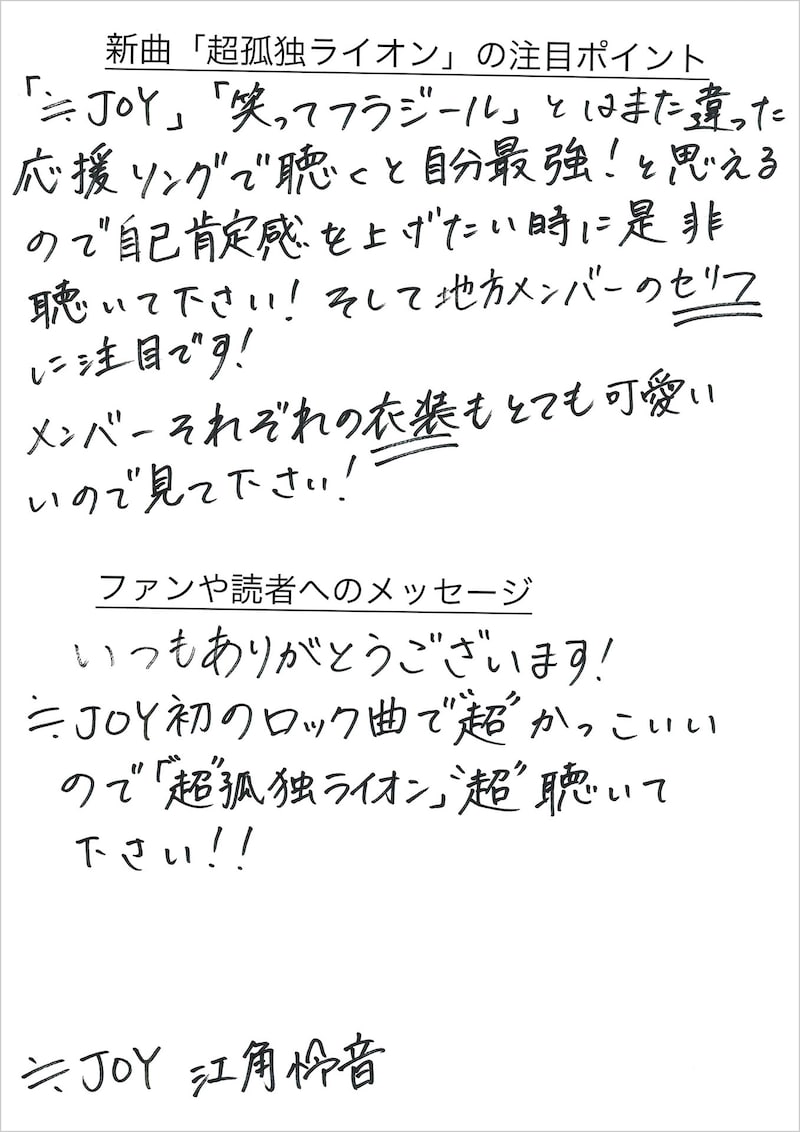 新曲「超孤独ライオン」の注目ポイント
「≒JOY」「笑ってフラジール」とはまた違った
応援ソングで聴くと自分最強！と思える
ので自己肯定感を上げたい時に是非
聴いて下さい！そして地方メンバーのセリフ
に注目です！
メンバーそれぞれの衣装もとても可愛い
いので見て下さい！
ファンや読者へのメッセージ
いつもありがとうございます！
≒JOY初のロック曲で"超"かっこいい
ので「"超"孤独ライオン」"超"聴いて
下さい！！
≒JOY 江角怜音